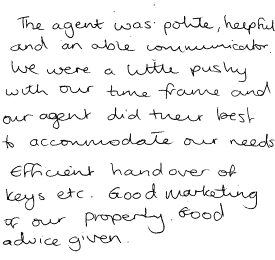 The agent was polite, helpful
and an able communicator.
We were a little pushy
with our time frame and
our agent did their best
to accommodate our needs
Efficient handover of
keys etc. Good marketing
of our property. Good
advice given.